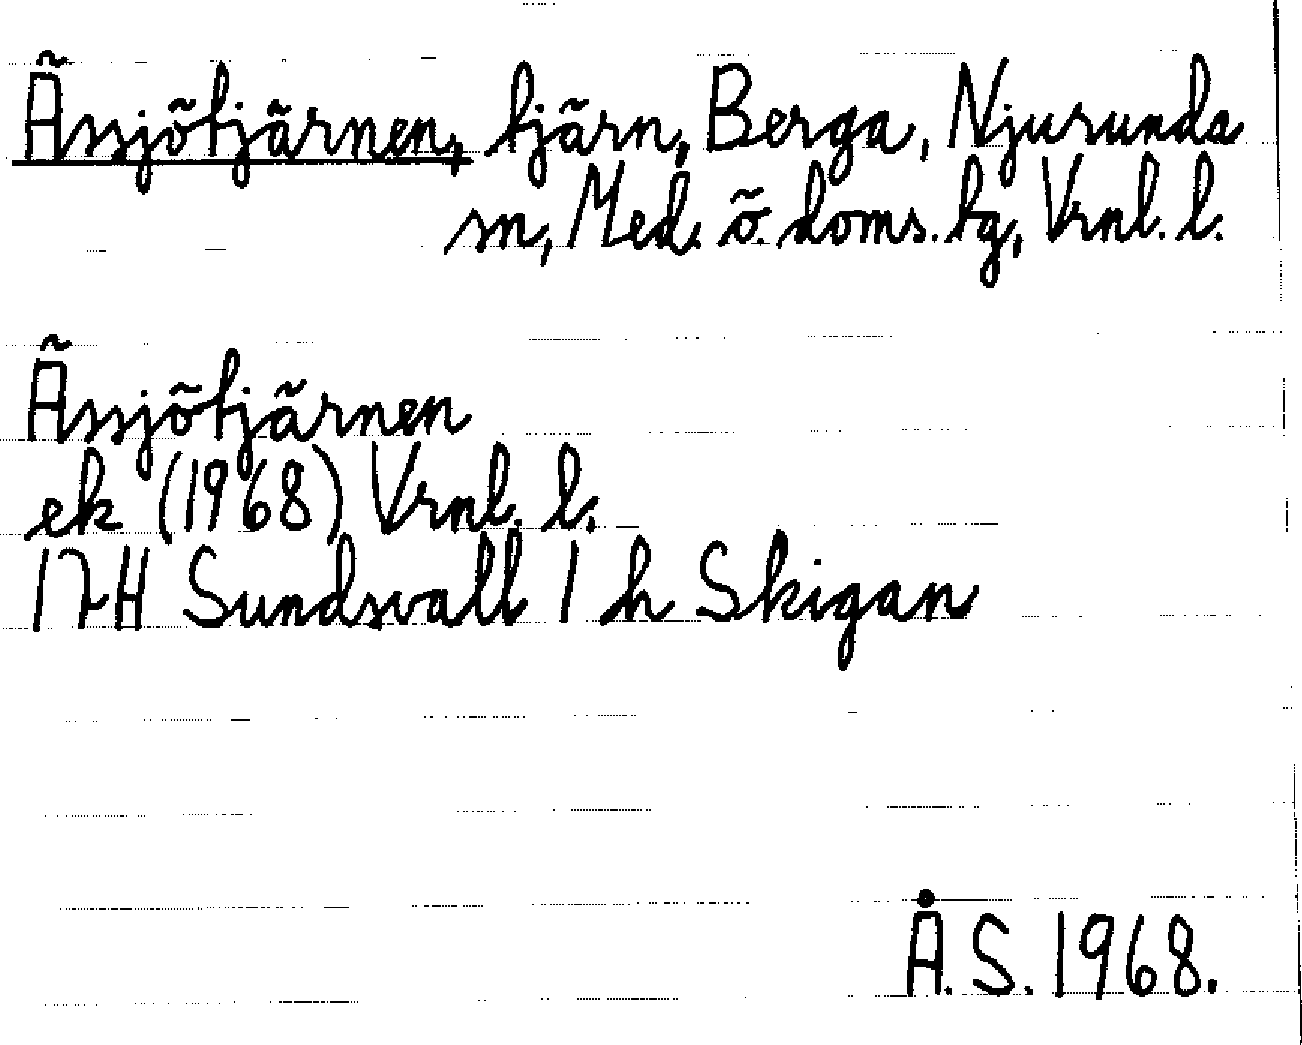 Ässjötjärnen, tjärn, Berga, Njurunda
sn, Med. ö. doms. tg, Vrnl. l.
Ässjötjärnen
ek (1968) Vrnl. l.
17H Sundsvall 1 h Skigan
Å.S. 1968.